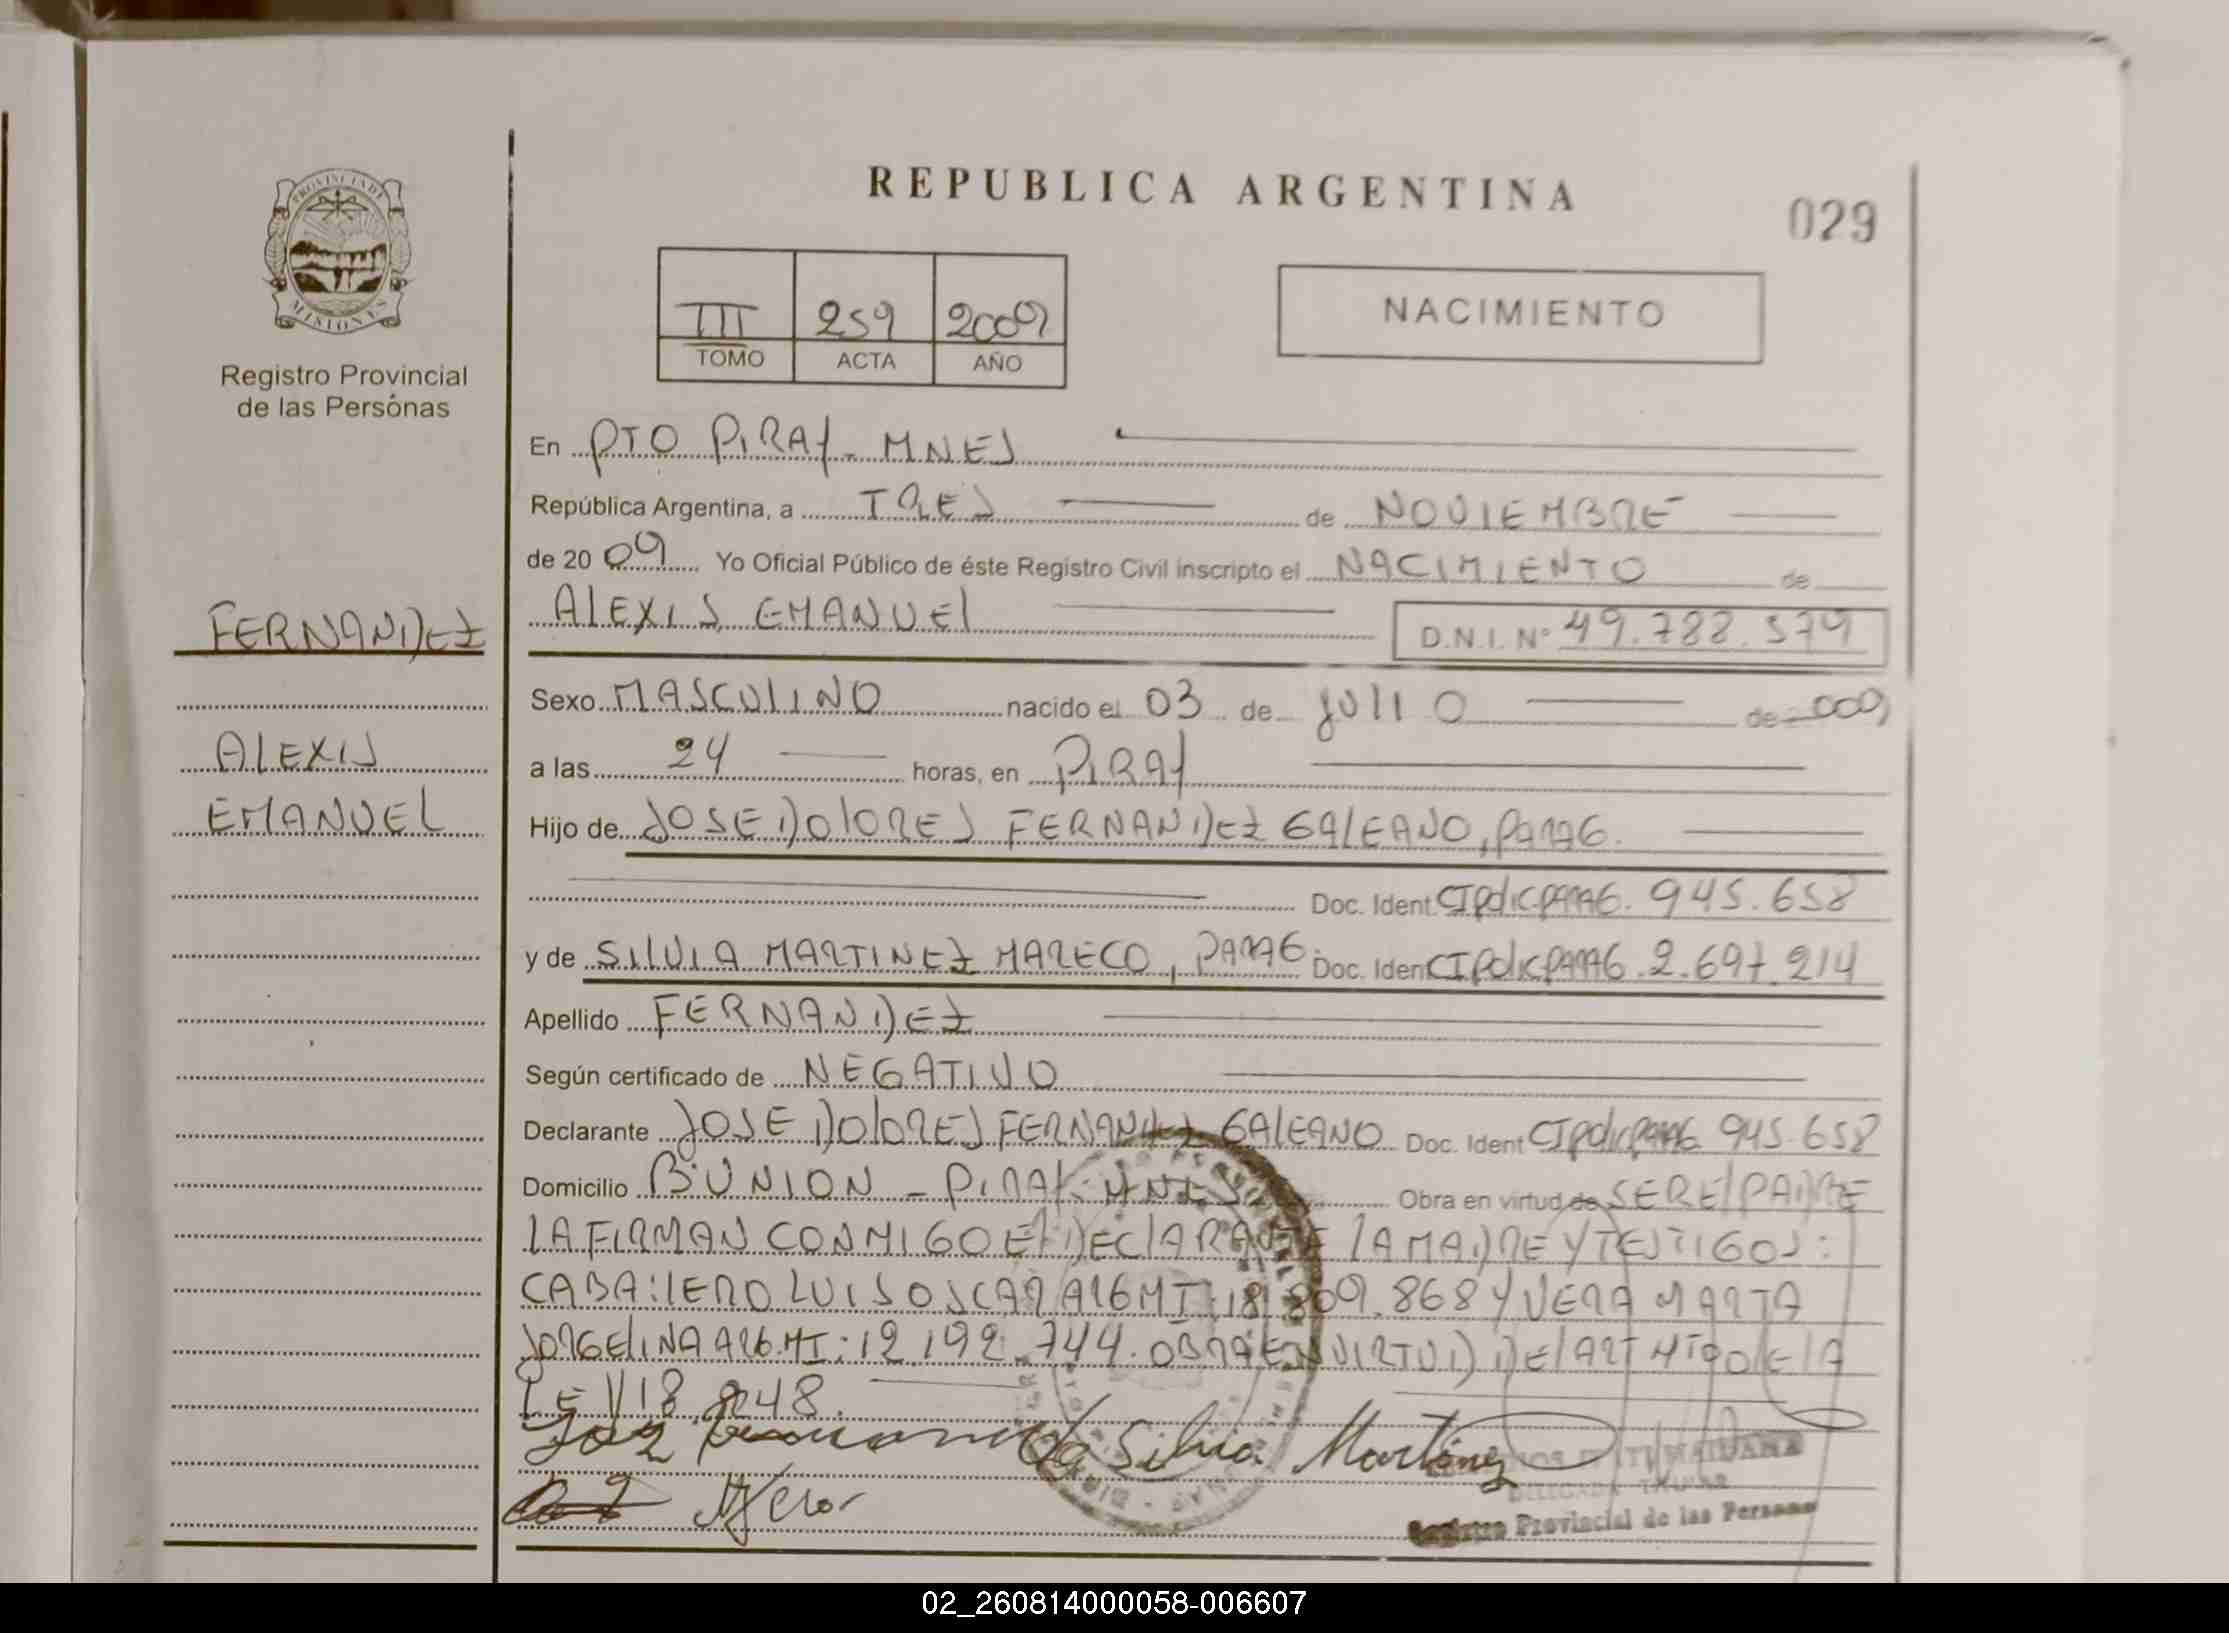 REPUBLICA ARGENTINA
029
PROVINCIA DE
MISIONES
Registro Provincial
de las Persónas
III 259 2009
TOMO ACTA AÑO
NACIMIENTO
En PTO PIRAY - MNES
República Argentina, a TRES de NOVIEMBRE
de 2009 Yo Oficial Público de éste Registro Civil inscripto el NACIMIENTO de
FERNANDEZ
ALEXIS EMANUEL D.N.I. Nº 49.788.579
Sexo MASCULINO nacido el 03 de JULIO de 2009
ALEXIS
a las 24 horas, en PIRAY
EMANUEL
Hijo de JOSE DOLORES FERNANDEZ GALEANO, PARAG.
Doc. Ident. CIPolicPARAG. 945.658
y de SILVIA MARTINEZ MARECO, PARAG. Doc. Ident CIPolicPARAG. 2.697.214
Apellido FERNANDEZ
Según certificado de NEGATIVO
Declarante JOSE DOLORES FERNANDEZ GALEANO Doc. Ident CIPolicPARAG 945.658
Domicilio Bº UNION - PIRAY - MNES Obra en virtud de SER EL PADRE
LA FIRMAN CONMIGO EL DECLARANTE LA MADRE Y TESTIGOS:
CABALLERO LUIS OSCAR ARG MI: 18.809.868 Y VERA MARTA
JORGELINA ARG. MI: 12.192.744. OBRA EN VIRTUD DEL ART Mº 9º DE LA
LEY 18.248.
Silvia Martinez
Registro Provincial de las Personas
02_260814000058-006607